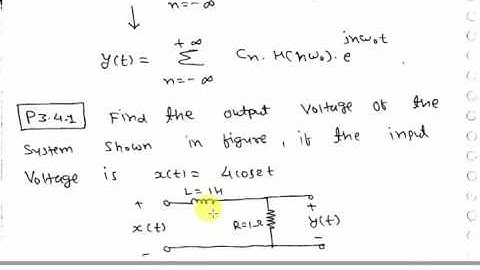 n=-∞
y(t) = +∞ Σ n=-∞ Cn. H(nω₀). e^jnω₀t
P3.4.1 Find the output voltage of the
system shown in figure, if the input
voltage is x(t) = 4coset
L=1H
+ +
x(t) R=1Ω y(t)
- -